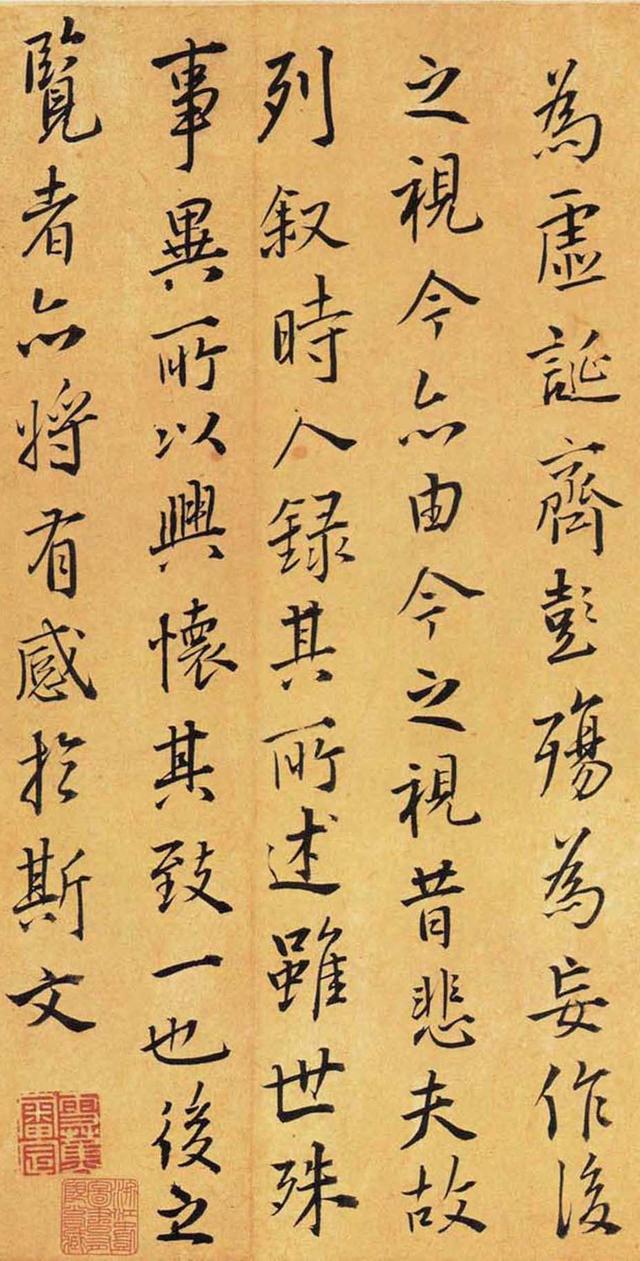 為虛誕齊彭殤為妄作後
之視今亦由今之視昔悲夫故
列叙時人錄其所述雖世殊
事異所以興懷其致一也後之
覽者亦將有感於斯文